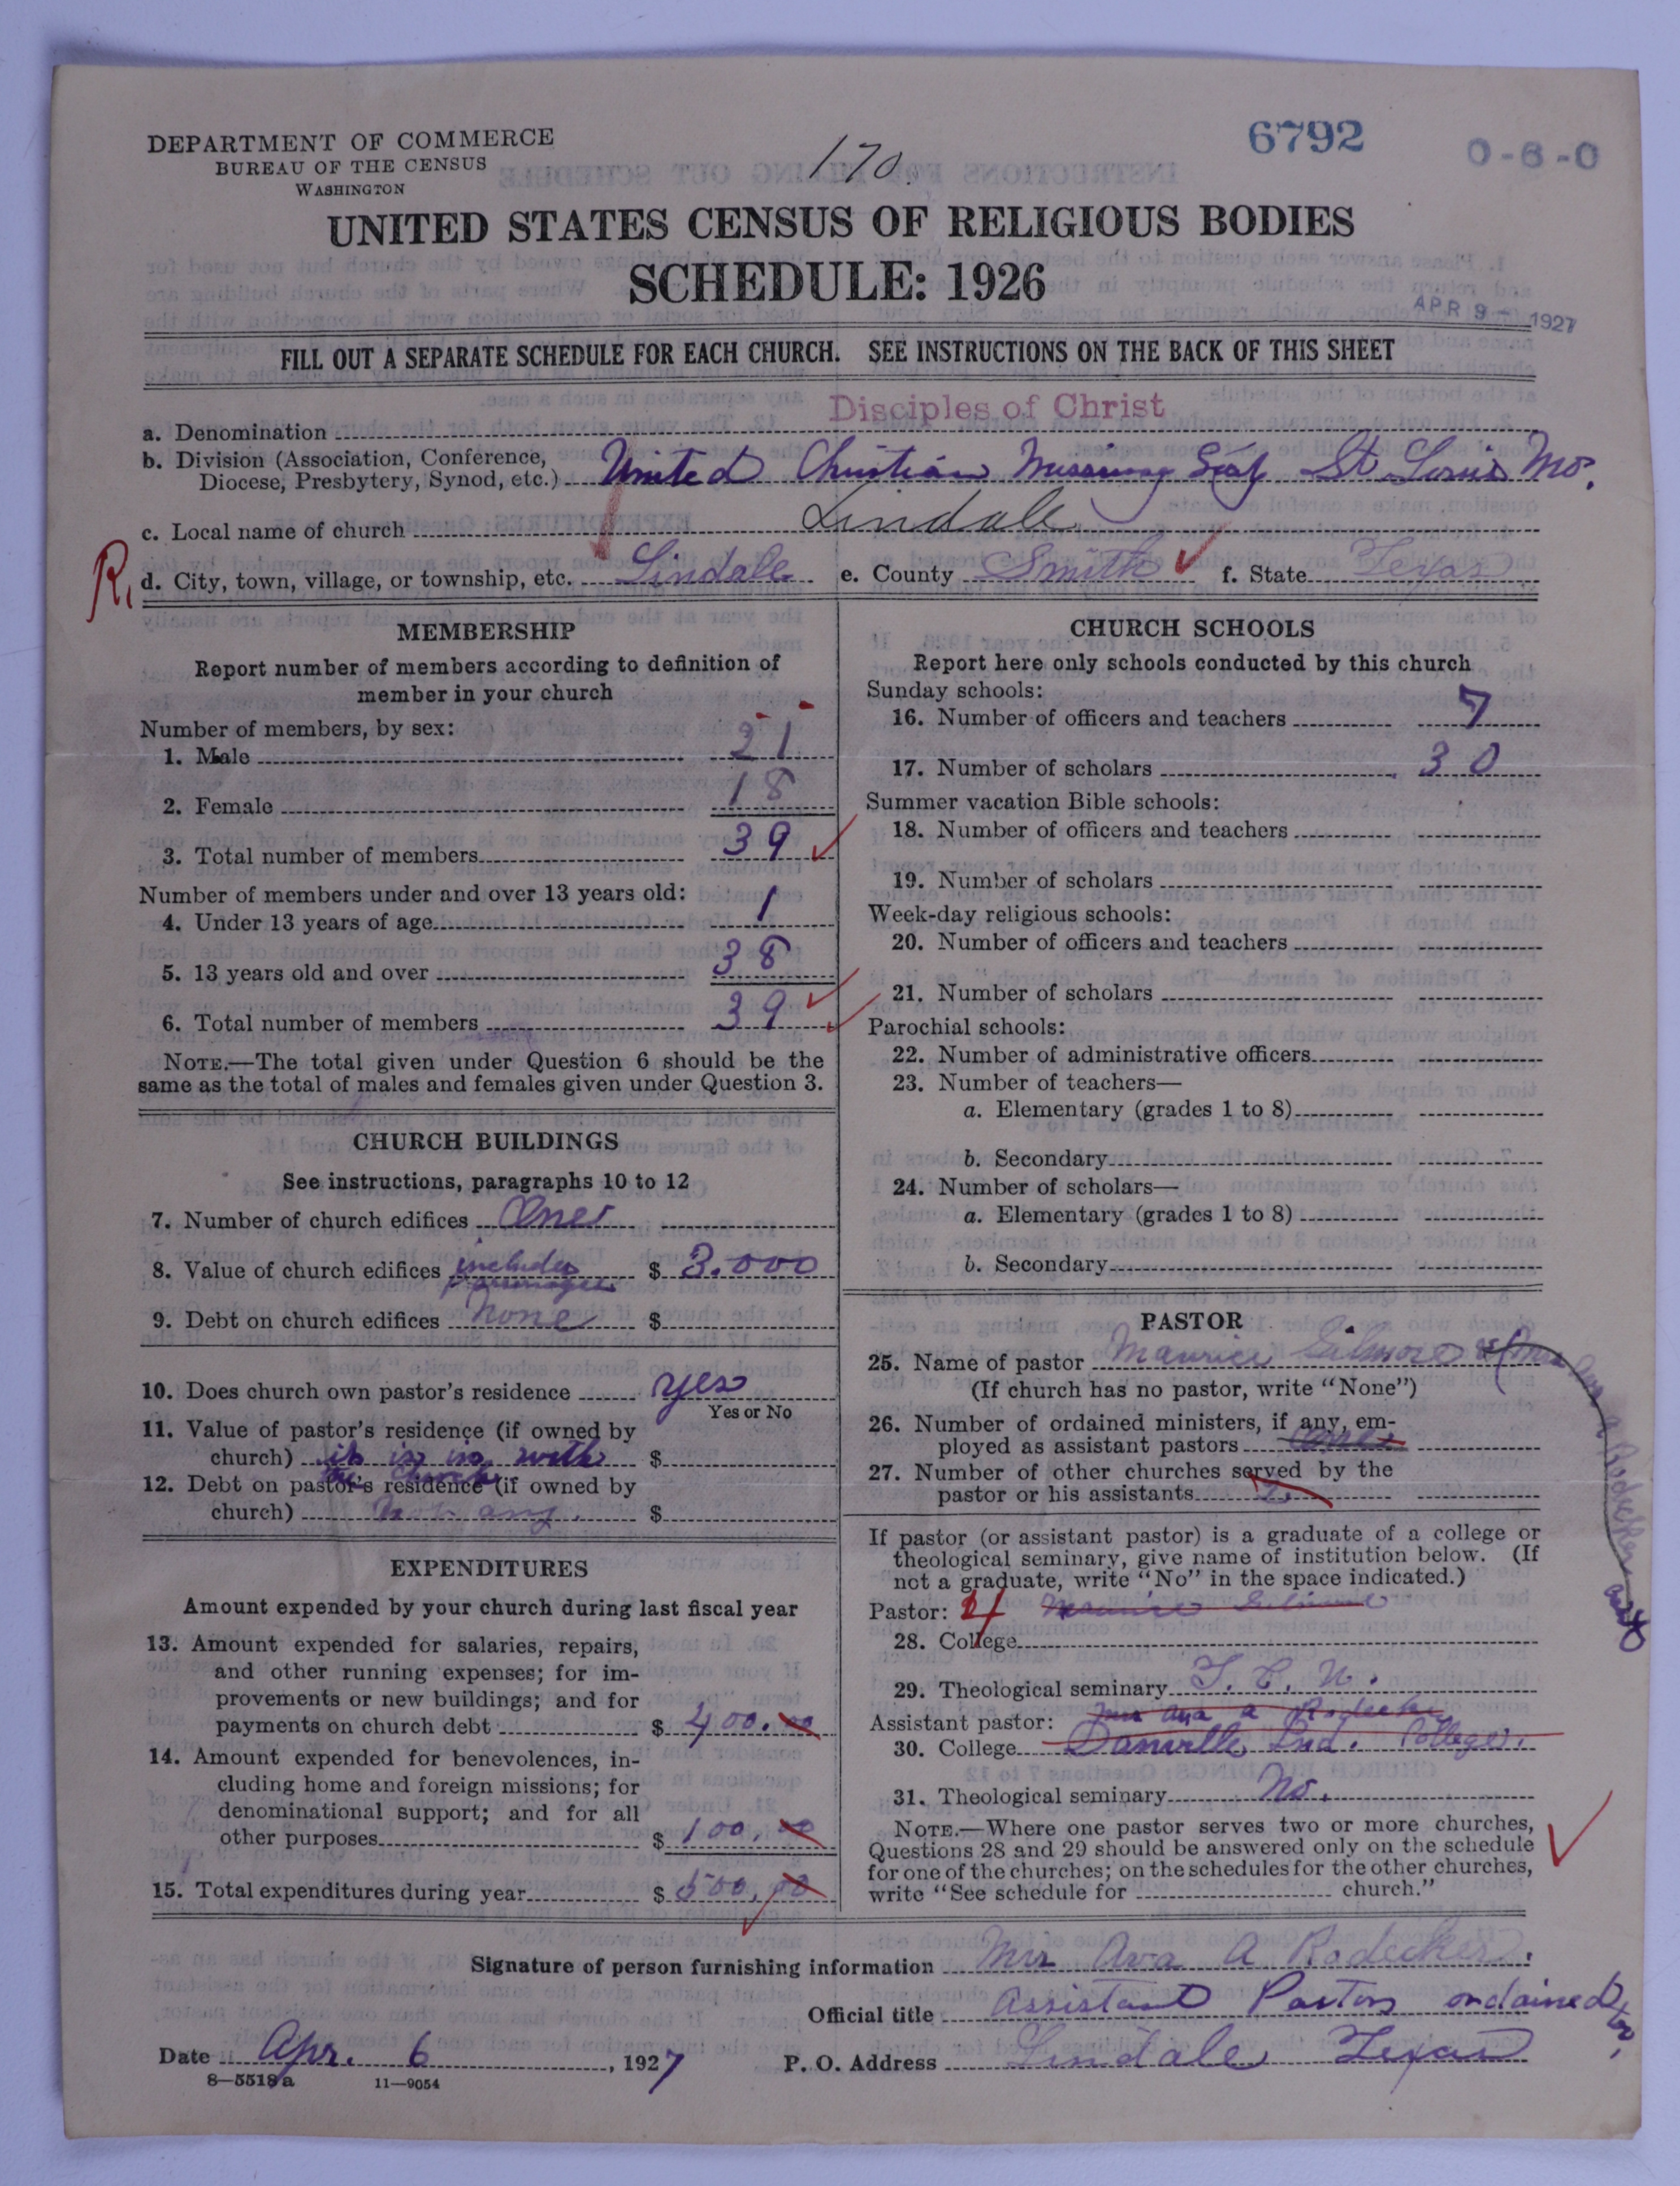 DEPARTMENT OF COMMERCE
BUREAU OF THE CENSUS
WASHINGTON
170.
6792
0-6-0
UNITED STATES CENSUS OF RELIGIOUS BODIES
SCHEDULE: 1926
APR 9 - 1927
FILL OUT A SEPARATE SCHEDULE FOR EACH CHURCH. SEE INSTRUCTIONS ON THE BACK OF THIS SHEET
a. Denomination Disciples of Christ
b. Division (Association, Conference,
Diocese, Presbytery, Synod, etc.) United Christian Missionary St Louis Mo.
c. Local name of church Lindale
R. d. City, town, village, or township, etc. Lindale e. County Smith f. State Texas
MEMBERSHIP
Report number of members according to definition of
member in your church
Number of members, by sex:
1. Male 21
2. Female 18
3. Total number of members 39
Number of members under and over 13 years old:
4. Under 13 years of age 1
5. 13 years old and over 38
6. Total number of members 39
NOTE.—The total given under Question 6 should be the
same as the total of males and females given under Question 3.
CHURCH BUILDINGS
See instructions, paragraphs 10 to 12
7. Number of church edifices One
8. Value of church edifices includes parsonage $ 3.000
9. Debt on church edifices none $
10. Does church own pastor's residence yes
Yes or No
11. Value of pastor's residence (if owned by
church) it is in with $
the church
12. Debt on pastor's residence (if owned by
church) not any. $
EXPENDITURES
Amount expended by your church during last fiscal year
13. Amount expended for salaries, repairs,
and other running expenses; for im-
provements or new buildings; and for
payments on church debt $ 400.00
14. Amount expended for benevolences, in-
cluding home and foreign missions; for
denominational support; and for all
other purposes $ 100.00
15. Total expenditures during year $ 500.00
CHURCH SCHOOLS
Report here only schools conducted by this church
Sunday schools:
16. Number of officers and teachers 7
17. Number of scholars 30
Summer vacation Bible schools:
18. Number of officers and teachers
19. Number of scholars
Week-day religious schools:
20. Number of officers and teachers
21. Number of scholars
Parochial schools:
22. Number of administrative officers
23. Number of teachers—
a. Elementary (grades 1 to 8)
b. Secondary
24. Number of scholars—
a. Elementary (grades 1 to 8)
b. Secondary
PASTOR
25. Name of pastor Maurice Gilmore & Mrs Ava A Rodecker asst
(If church has no pastor, write "None")
26. Number of ordained ministers, if any, em-
ployed as assistant pastors one
27. Number of other churches served by the
pastor or his assistants 2
If pastor (or assistant pastor) is a graduate of a college or
theological seminary, give name of institution below. (If
not a graduate, write "No" in the space indicated.)
Pastor: Maurice Gilmore
28. College
29. Theological seminary T. C. U.
Assistant pastor: Mrs Ava A Rodecker
30. College Danville Ind. College.
31. Theological seminary No.
NOTE.—Where one pastor serves two or more churches,
Questions 28 and 29 should be answered only on the schedule
for one of the churches; on the schedules for the other churches,
write "See schedule for church."
Signature of person furnishing information Mrs Ava A Rodecker.
Official title Assistant Pastor ordained
Date Apr. 6, 1927 P. O. Address Lindale Texas
8—5518a 11—9054